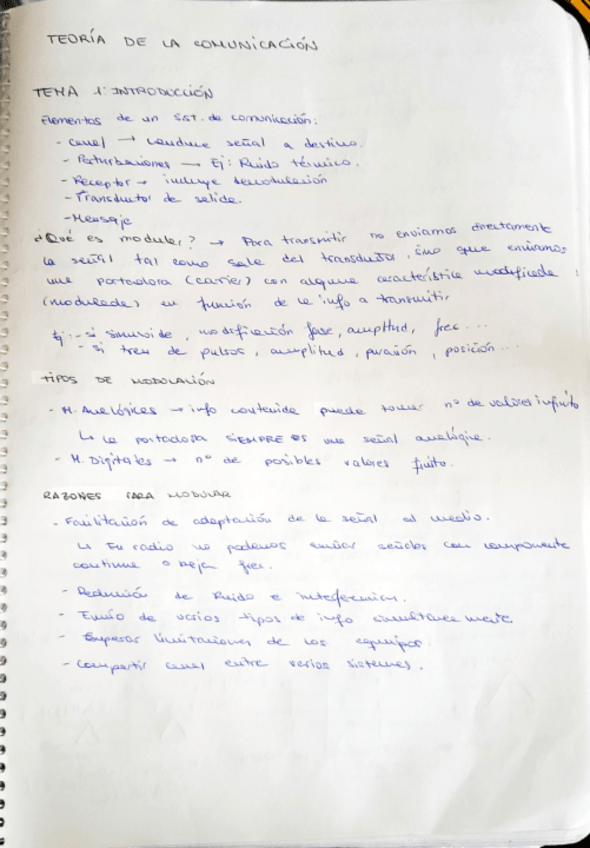 TEORÍA DE LA COMUNICACIÓN
TEMA 1: INTRODUCCIÓN
Elementos de un sist. de comunicación:
- Canal → conduce señal a destino.
- Perturbaciones → Ej: Ruido térmico.
- Receptor → incluye demodulación
- Transductor de salida.
- Mensaje
¿Qué es modular? → Para transmitir no enviamos directamente
la señal tal como sale del transductor, sino que enviamos
una portadora (carrier) con alguna característica modificada
(modulada) en función de la info a transmitir
Ej: - si sinusoide, modificación fase, amplitud, frec...
- si tren de pulsos, amplitud, duración, posición...
TIPOS DE MODULACIÓN
- M. Analógicas → info contenida puede tomar nº de valores infinito
↳ la portadora SIEMPRE es una señal analógica.
- M. Digitales → nº de posibles valores finito.
RAZONES PARA MODULAR
- Facilitación de adaptación de la señal al medio.
↳ En radio no podemos enviar señales con componente
continua o baja frec.
- Reducción de Ruido e interferencias.
- Envío de varios tipos de info simultáneamente.
- Superar limitaciones de los equipos.
- Compartir canal entre varios sistemas.